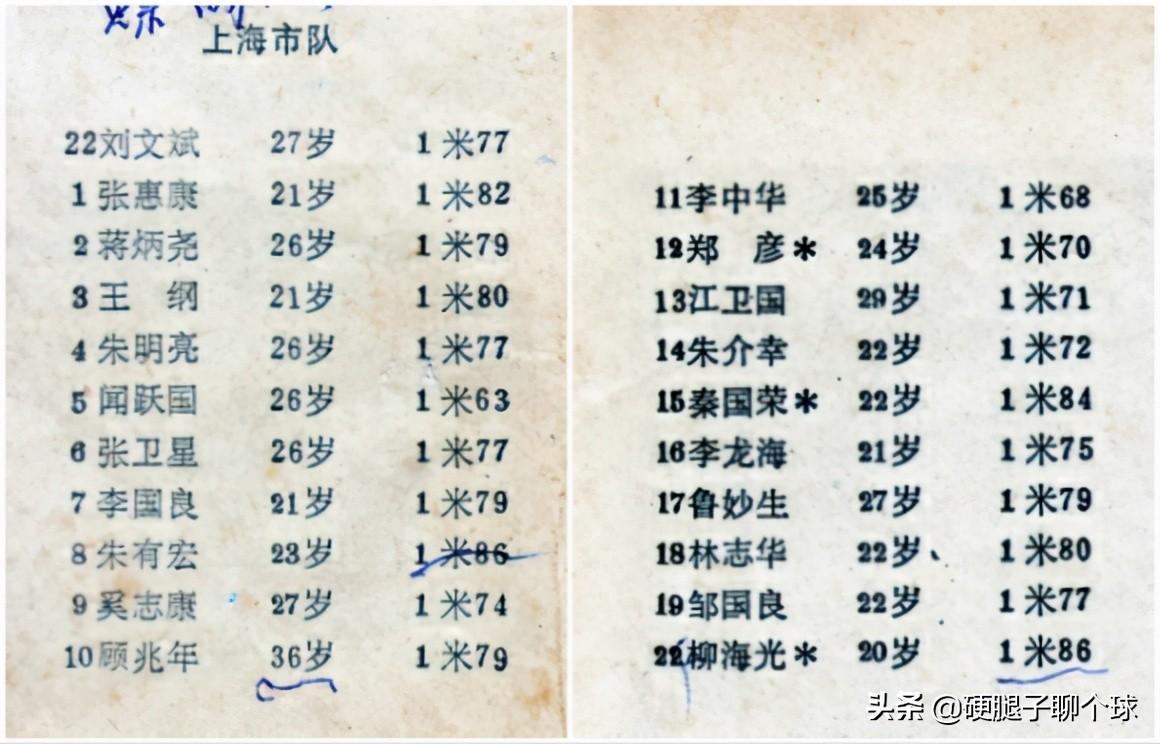 上海市队
22刘文斌 27岁 1米77
1 张惠康 21岁 1米82
2 蒋炳尧 26岁 1米79
3 王 纲 21岁 1米80
4 朱明亮 26岁 1米77
5 闻跃国 26岁 1米63
6 张卫星 26岁 1米77
7 李国良 21岁 1米79
8 朱有宏 23岁 1米86
9 奚志康 27岁 1米74
10顾兆年 36岁 1米79
11李中华 25岁 1米68
12郑 彦* 24岁 1米70
13江卫国 29岁 1米71
14朱介幸 22岁 1米72
15秦国荣* 22岁 1米84
16李龙海 21岁 1米75
17鲁妙生 27岁 1米79
18林志华 22岁、 1米80
19邹国良 22岁 1米77
22柳海光* 20岁 1米86
头条 @硬腿子聊个球